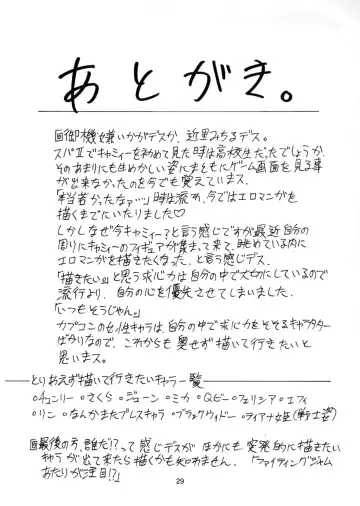 あとがき。
回御機嫌いかがデスか、近里みちるデス。
スパⅡでキャミィーを初めて見た時は高校生だったでしょうか、
そのあまりにも生めかしい姿にまともにゲーム画面を見る事
が出来なかったのを今でも覚えていまス。
「若かったなぁ…」時は流れ、今ではエロマンガを
描くまでにいたりました♡
しかしなぜ今キャミィーで?と言う感じでわが最近自分の
周りにキャミィーのフィギュアが集まって来て、眺めている内に
エロマンガを描きたくなった、と言う感じデス。
「描きたい。」と思う求心力は自分の中で大切にしているので
流行より、自分の心を優先させてしまいました。
「いつもそうじゃん。」
カプコンの女性キャラは、自分の中で求心力をそそるキャラクター
ばかりなので、これからも臆せず描いて行きたいと
思いまス。
とりあえず描いて行きたいキャラ一覧
○チュンリー ○さくら ○ジューン ○ミカ ○Qビー ○フェリシア ○エフィ
○リン ○なんかまたブレスキャラ ○ブラックウィドー ○ティアナ姫(戦士姿)
回最後の方、誰だ!?って感じデスがほかにも突発的に描きたい
キャラが出て来たら描くかも知れません、「ファイティングジャム
あたりが注目!?」
29